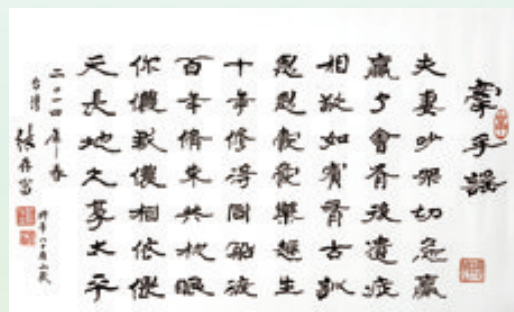 牽手謠
夫妻吵架切忌贏
贏了會有後遺症
相敬如賓有古訓
忍忍愛愛樂趣生
十年修得同船渡
百年修來共枕眠
你儂我儂相依偎
天長地久享太平
二〇一四年春
台灣
時年八十有